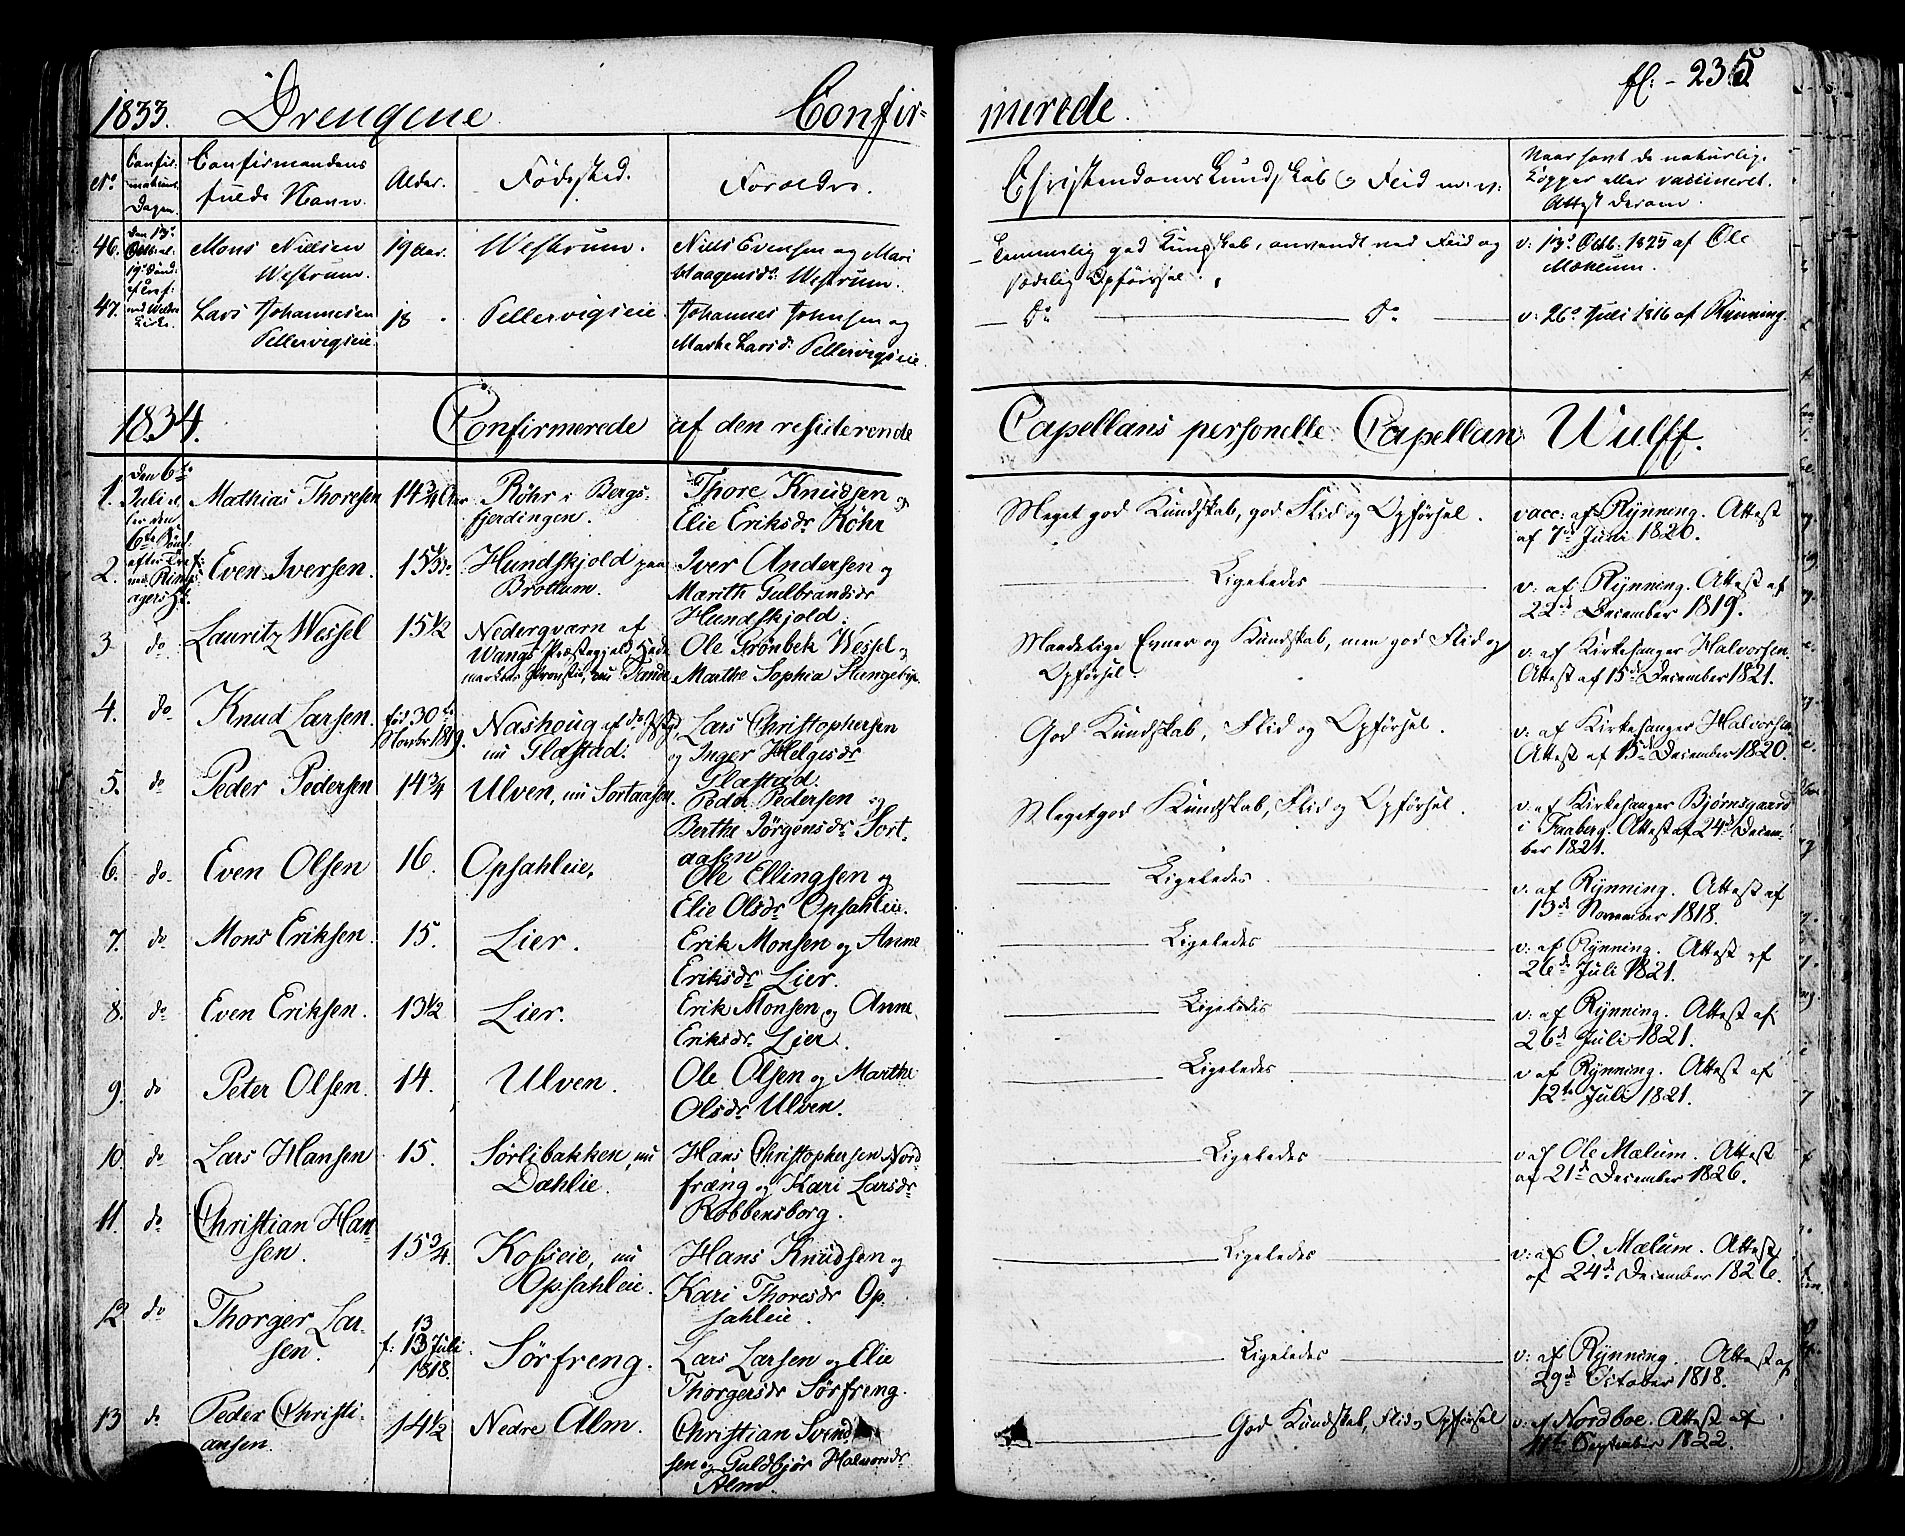 1833. Drengene Confir-
merede. fl: - 235
No. Confir-mations Dagen. Confirmandens fulde Navn. Alder. Fødested. Forældre. Christendoms Kundskab & Flid m: v: Naar havt de naturlige Kopper eller vaccineret. Attest derom.
46. Mons Nielsen 19 Aar. Westrum. Niels Evensen og Mari Temmelig god Kundskab, anvendt med Flid og v: 13de Octb: 1825 af Ole
Westrum. Haagensdr Westrum. sædelig Opførsel. Mælum.
47. Lars Johannesen 18 Pellervigseie. Johannes Johnsen og Do Do v: 26de Juli 1816 af Rynning.
Pellervigseie. Marthe Larsdr Pellervigseie.
1834. Confirmerede af den residerende Capellans personelle Capellan Wulff.
1. Den 6te Juli Mathias Thoresen 14 3/4 Aar Röhr i Bergs- Thore Knudsen og Meget god Kundskab, god Flid og Opførsel. vacc: af Rynning. Attest
fjerdingen. Elie Eriksdr Röhr af 7de Juni 1820.
2. Even Iversen. 15 1/3 do. Hundskjold paa Iver Andersen og Ligeledes v: af Rynning. Attest af
Brottum. Marith Gulbrandsdr 22de December 1819.
Hundskjold.
3 do Lauritz Wessel 15 1/2 Nederqværn af Ole Grönbek Wessel og Maadelige Evner og Kundskab, men god Flid og v: af Kirkesanger Halvorsen.
Wangs Præstegjeld, Hede- Marthe Sophia Opførsel. Attest af 15de December 1821.
markens Provstie, nu
4. do Knud Larsen. fød 30te Nashoug af do Lars Christophersen God Kundskab, Flid og Opførsel. v: af Kirkesanger Halvorsen.
Novbr 1819. nu Glæstad. og Inger Helgesdr Attest af 15de December 1820.
Glæstad.
5. do Peder Pedersen 14 3/4 Ulven, nu Sortaasen. Peder Pedersen og Meget god Kundskab, Flid og Opførsel. v: af Kirkesanger Bjørnsgaard
Berthe Jörgensdr Sort- i Faaberg. Attest af 24de Decem-
aasen ber 1821.
6. do Even Olsen 16. Opsahleie. Ole Ellingsen og Ligeledes. v: af Rynning. Attest af
Elie Olsdr Opsahleie. 13de November 1818.
7. do Mons Eriksen. 15. Lier. Erik Monsen og Anne Ligeledes v: af Rynning. Attest af
Eriksdr Lier. 26de Juli 1821.
8. do Even Eriksen. 13 1/2 Lier. Erik Monsen og Anne Ligeledes v: af Rynning. Attest af
Eriksdr Lier. 26de Juli 1821.
9. do Peter Olsen. 14. Ulven. Ole Olsen og Marthe Ligeledes v af Rynning. Attest af
Olsdr Ulven. 12te Juli 1821.
10. do Lars Hansen 15. Sörlibakken, nu Hans Christophersen Nord- Ligeledes v af Ole Mælum. Attest
Dæhlie. fræng og Kari Larsdr af 21de December 1826.
Robbensborg.
11. do Christian Han- 15 3/4. Kobseie, nu Hans Knudsen og Ligeledes v: af O. Mælum. Attest
sen. Opsahleie. Kari Thoresdr Op- af 24de December 1826.
sahleie.
12 do Thorger Lar- 13 f: 13 Juli 1818. Sörfreng. Lars Larsen og Elie Ligeledes v: af Rynning. Attest af
sen. Thorgersdr Sörfreng. 29de October 1818.
13 do Peder Christi- 14 1/2 Nedre Alm. Christian God Kundskab, Flid og Opførsel v: af Nordboe. Attest af
ansen. sen og Guldbjör Halvorsdr September 1822.
Alm.